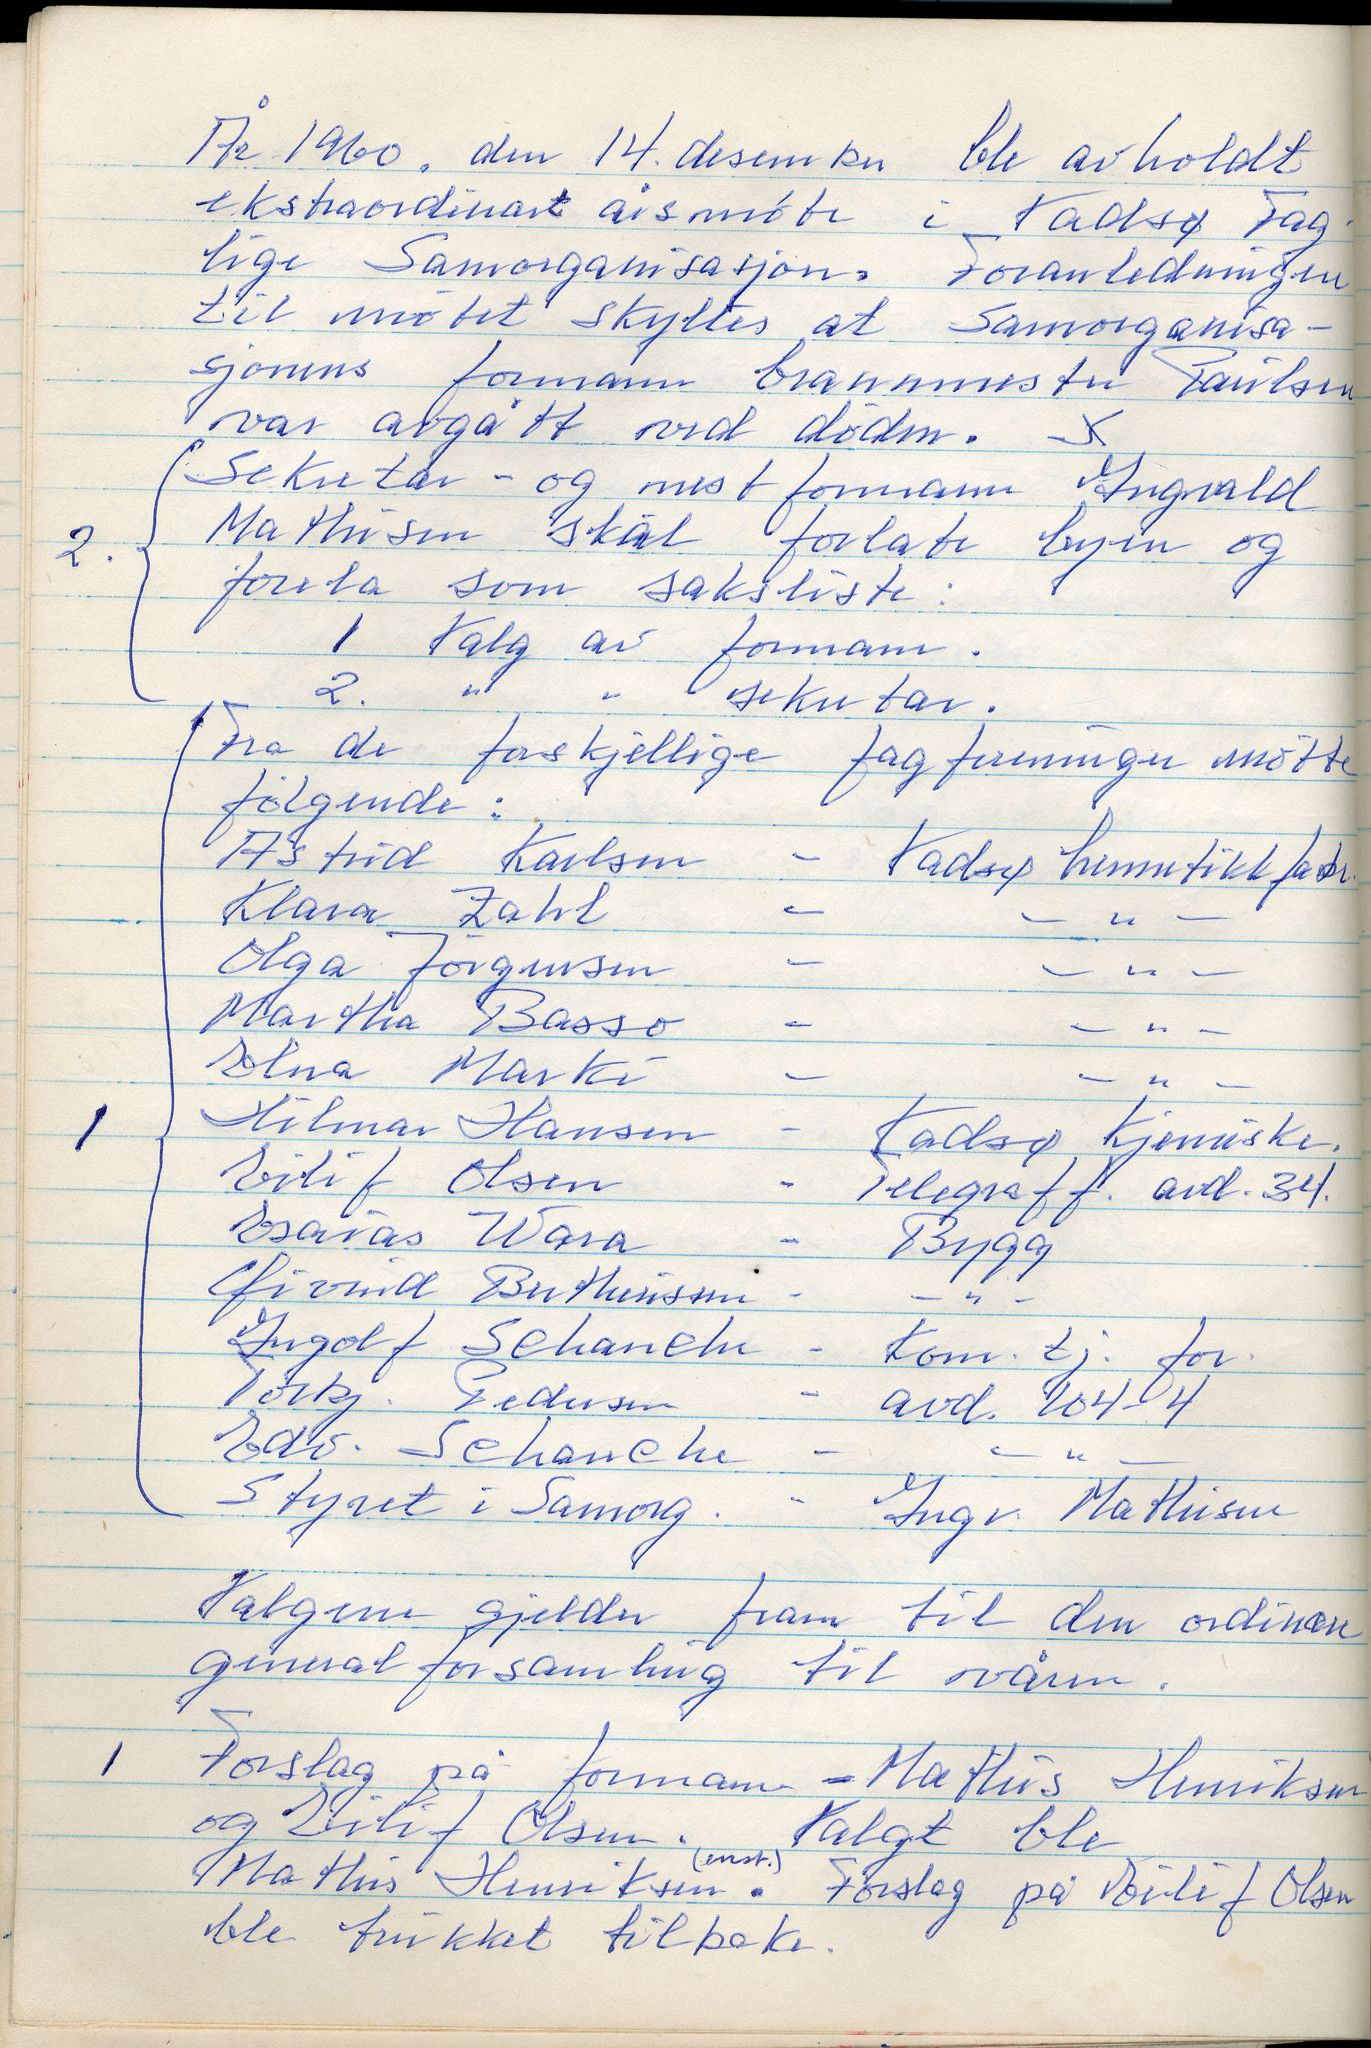 År 1960, den 14. desember ble avholdt
ekstraordinært årsmöte i Vadsø Fag-
lige Samorganisasjon. Foranledningen
til mötet skyltes at Samorganisa-
sjonens formann brannmester Paulsen
var avgått ved döden. X
Sekretær - og nestformann Ingvald
2. Mathisen skal forlate byen og
forela som saksliste:
1 Valg av formann.
2. " " sekretær.
Fra de forskjellige fagforeninger mötte
fölgende:
Astrid Karlsen - Vadsø hermetikkfabr.
Klara Zahl - - " -
Olga Jörgensen - - " -
Martha Basso - - " -
Elna Marki - - " -
1 Hilmar Hansen - Vadsø Kjemiske.
Eilif Olsen - Telegraff. avd. 34.
Esaias Wara - Bygg
Eivind Berthinsen - - " -
Ingolf Schanche - Kom. tj. for.
Torbj. Pedersen - avd. 104-4
Edv. Schanche - - " -
Styret i Samorg. - Ingv. Mathisen
Valgene gjelder fram til den ordinære
generalforsamling til våren.
1 Forslag på formann = Mathis Henriksen
og Eilif Olsen. Valgt ble
Mathis Henriksen (enst.). Forslag på Eilif Olsen
ble trukket tilbake.